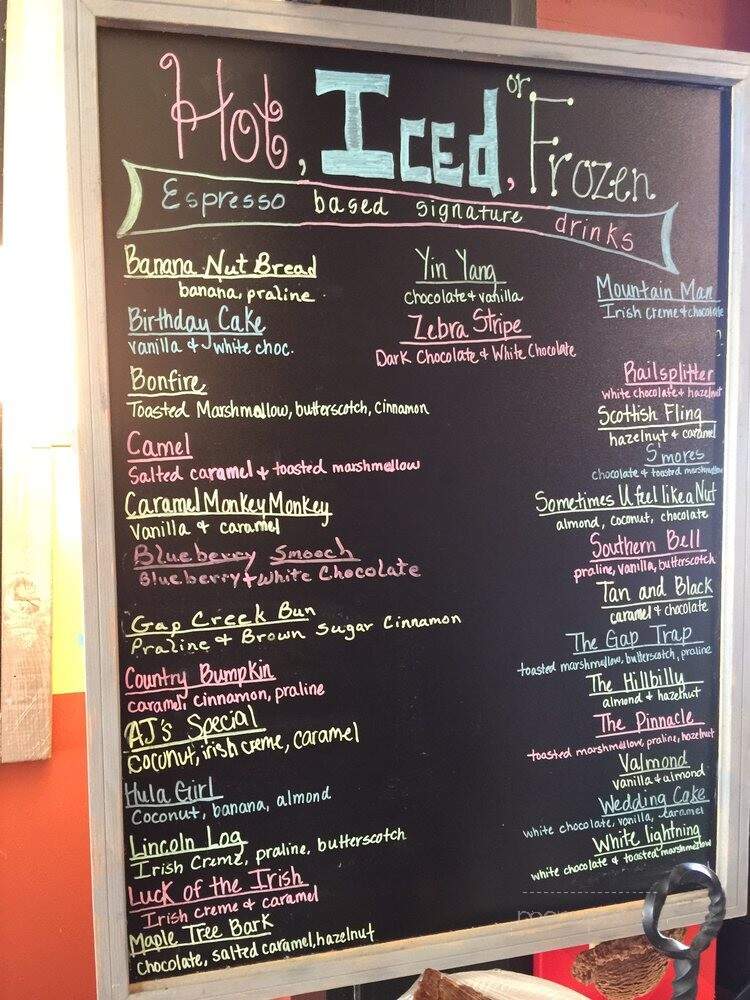 Hot, Iced, or Frozen
Espresso based signature drinks
Banana Nut Bread
banana, praline
Birthday Cake
vanilla & white choc.
Bonfire
Toasted Marshmallow, butterscotch, cinnamon
Camel
Salted caramel + toasted marshmallow
Caramel Monkey Monkey
Vanilla & caramel
Blueberry Smooch
Blueberry + White Chocolate
Gap Creek Bun
Praline & Brown Sugar Cinnamon
Country Bumpkin
caramel, cinnamon, praline
AJ's Special
Coconut, irish creme, caramel
Hula Girl
Coconut, banana, almond
Lincoln Log
Irish Creme, praline, butterscotch
Luck of the Irish
Irish creme & caramel
Maple Tree Bark
Chocolate, salted caramel, hazelnut
Yin Yang
chocolate + vanilla
Zebra Stripe
Dark Chocolate & White Chocolate
Mountain Man
Irish creme & chocolate
Railsplitter
white chocolate & hazelnut
Scottish Fling
hazelnut & caramel
S'mores
chocolate & toasted marshmallow
Sometimes U feel like a Nut
almond, coconut, chocolate
Southern Bell
praline, vanilla, butterscotch
Tan and Black
caramel & chocolate
The Gap Trap
toasted marshmallow, butterscotch, praline
The Hillbilly
almond & hazelnut
The Pinnacle
toasted marshmallow, praline, hazelnut
Valmond
vanilla & almond
Wedding Cake
white chocolate, vanilla, caramel
White lightning
white chocolate & toasted marshmallow